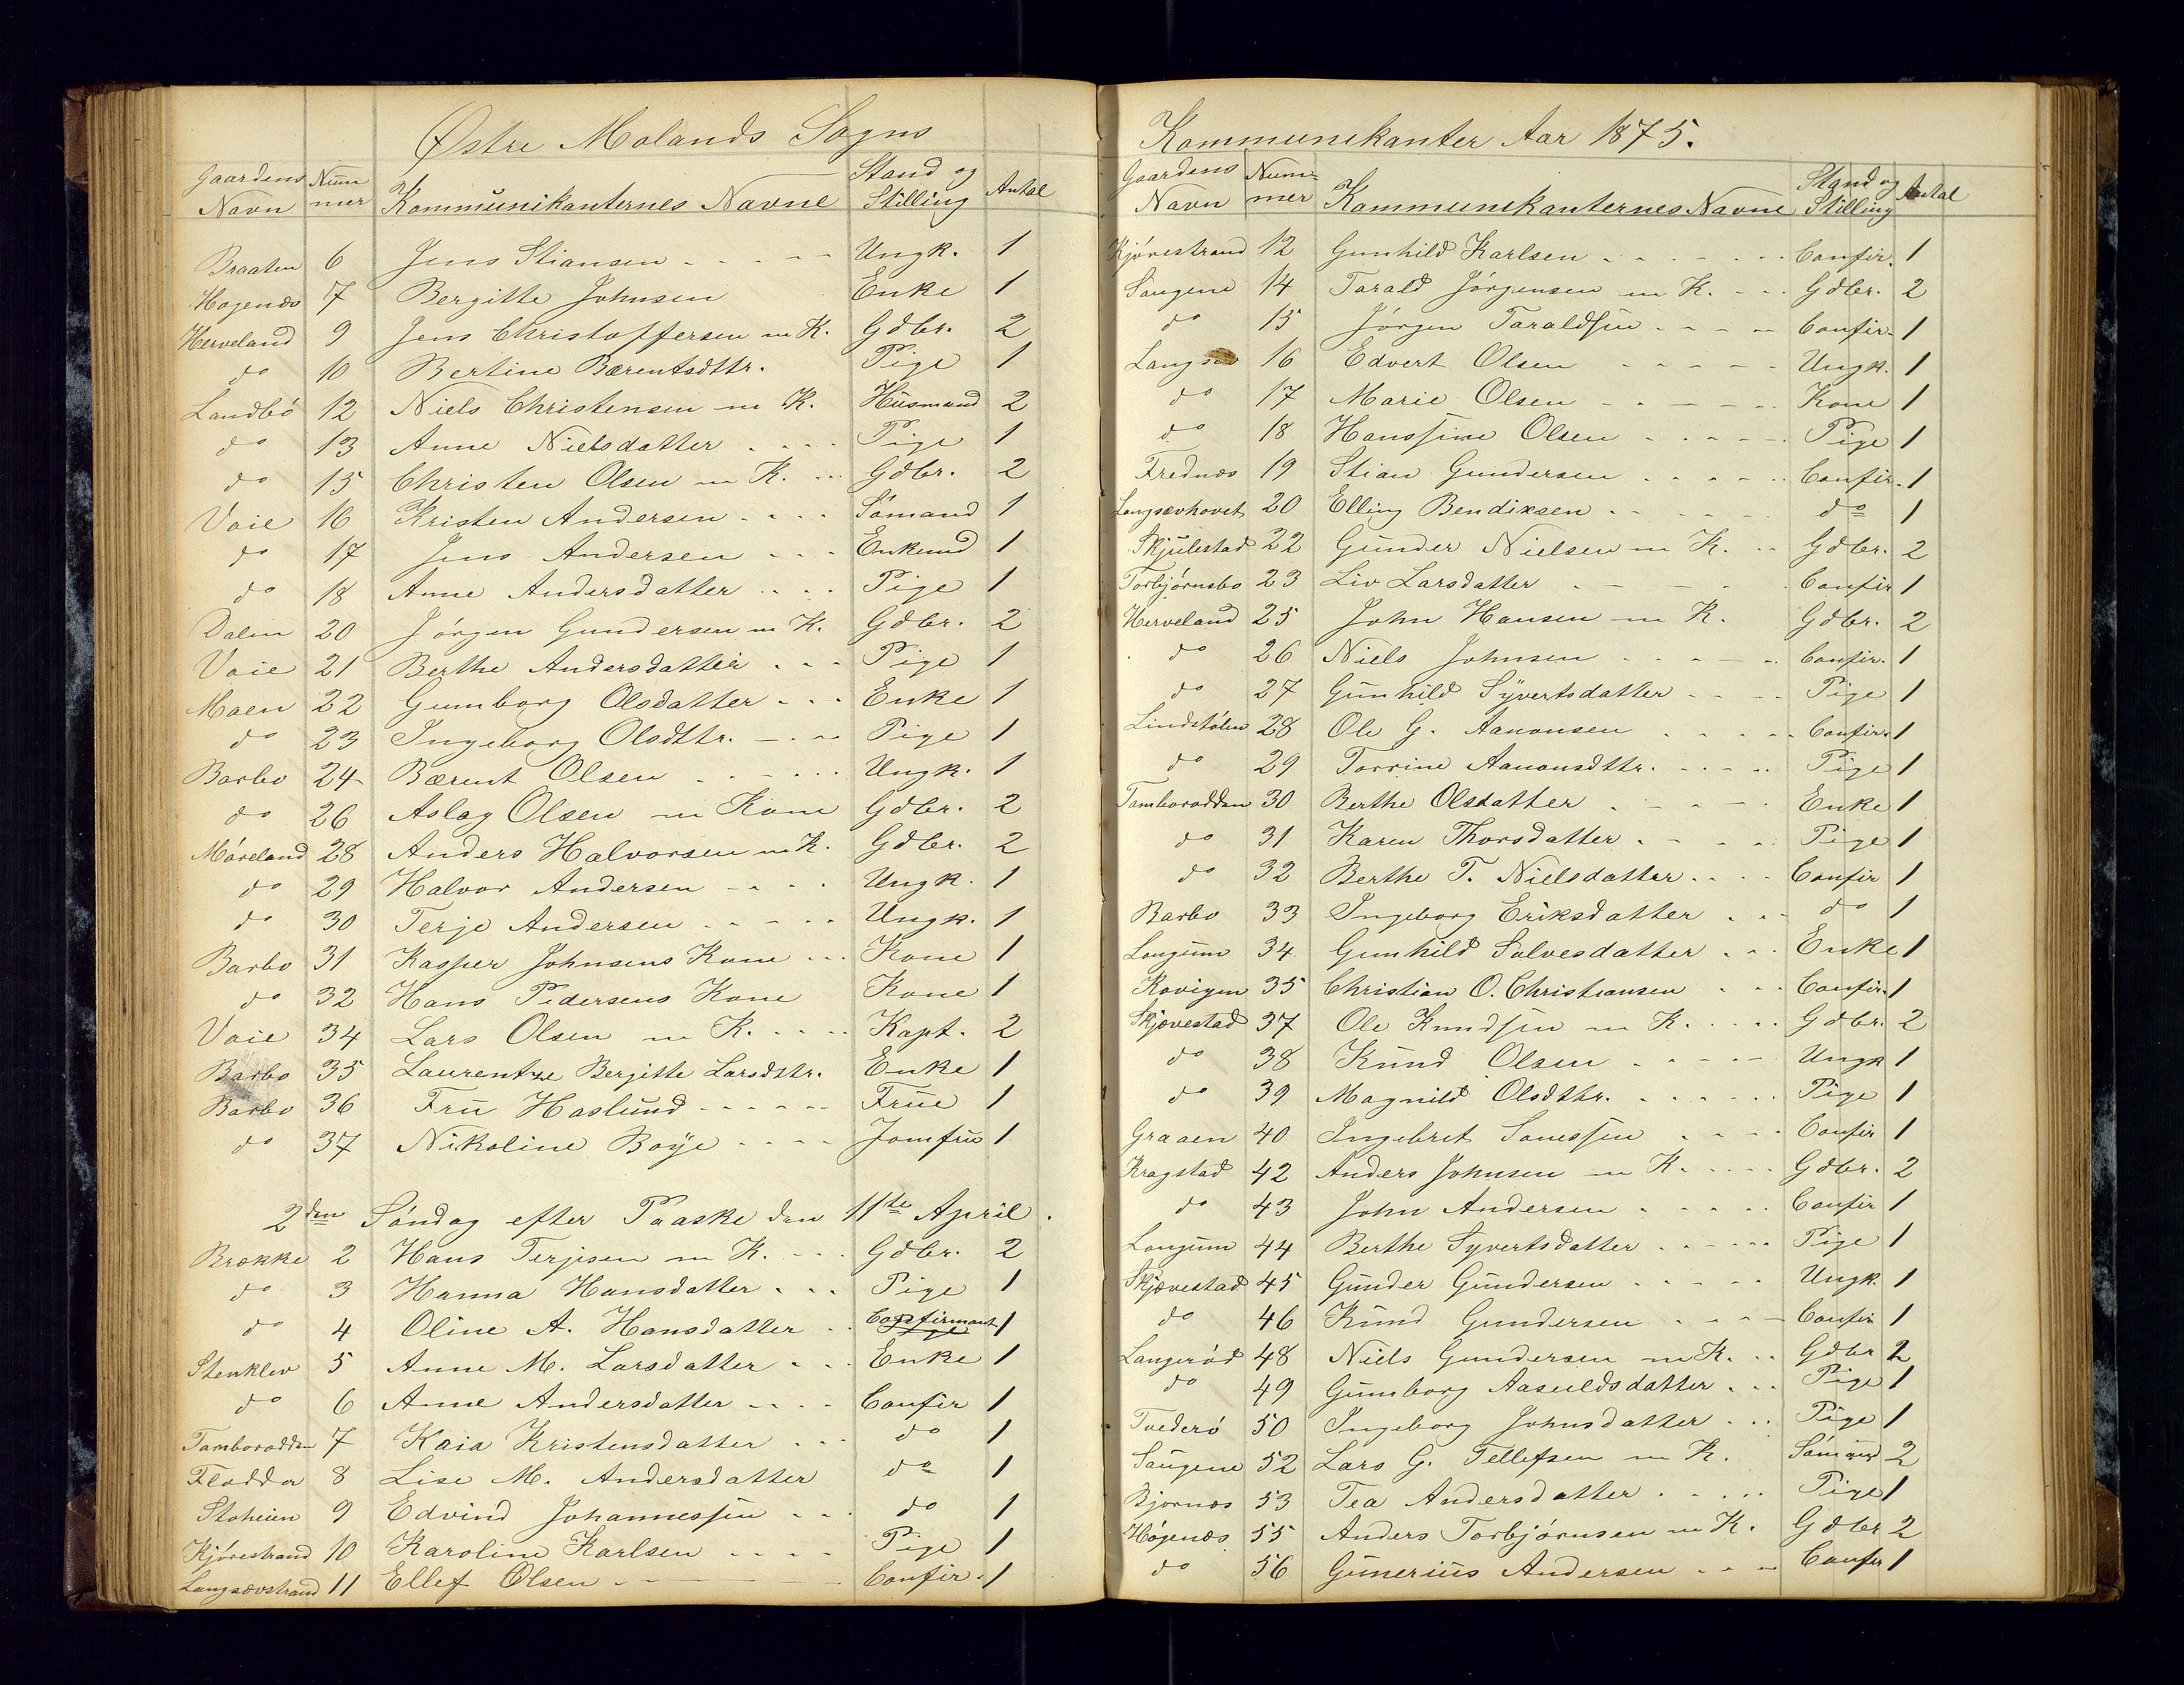 Østre Molands Sogns
Gaardens Navn Nummer Kommunikanternes Navne Stand og Stilling Antal
Braaten 6 Jens Stiansen - - - - - Ungk. 1
Hagenæs 7 Bergitte Johnsen Enke 1
Herveland 9 Jens Christoffersen m K. Gdbr. 2
do 10 Bertine Bærentsdttr. Pige 1
Landbö 12 Niels Christensen m K. Husmand 2
do 13 Anne Nielsdatter - - - Pige 1
do 15 Christen Olsen m K. - - Gdbr. 2
Vaie 16 Kristen Andersen - - - - Sömand 1
do 17 Jens Andersen - - - Enkemd 1
do 18 Anne Andersdatter - - - - Pige 1
Dalen 20 Jörgen Gundersen m K. Gdbr. 2
Vaie 21 Berthe Andersdatter - - - Pige 1
Moen 22 Gumborg Olsdatter - - - Enke 1
do 23 Ingeborg Olsdttr. - - - Pige 1
Barbo 24 Bærent Olsen - - - - - Ungk. 1
do 26 Aslag Olsen m Kone Gdbr. 2
Möreland 28 Anders Halvorsen m K. Gdbr. 2
do 29 Halvor Andersen - - - - Ungk. 1
do 30 Terje Andersen - - - - - Ungk. 1
Barbo 31 Kasper Johnsens Kone - - Kone 1
do 32 Hans Pedersens Kone Kone 1
Vaie 34 Lars Olsen m K. - - - - Kapt. 2
Barbo 35 Laurentze Bergitte Larsdttr. Enke 1
Barbo 36 Fru Haslund - - - - - - Frue 1
do 37 Nikoline Boye - - - - Jomfru 1
2den Söndag efter Paaske den 11te April.
Brække 2 Hans Terjesen m K. - - - Gdbr. 2
do 3 Hanna Hansdatter - - - Pige 1
do 4 Oline A. Hansdatter - - Confirmant 1
Stenklev 5 Anne M. Larsdatter - - - Enke 1
do 6 Anne Andersdatter - - - - Confir 1
Tamborodden 7 Kaia Kristensdatter - - - do 1
Flodden 8 Lise M. Andersdatter do 1
Stoheien 9 Edvind Johannessen - - - do 1
Kjörestrand 10 Karoline Karlsen - - - - Pige 1
Langsævstrand 11 Ellef Olsen - - - - Confir. 1
Kommunikanter Aar 1875.
Gaardens Navn Nummer Kommunikanternes Navne Stand og Stilling Antal
Kjörestrand 12 Gunhild Karlsen - - - - - - - Confir. 1
Saugene 14 Tarald Jörgensen m K. - - - Gdbr. 2
do 15 Jörgen Taraldsen - - - - - Confir. 1
Langsæv 16 Edvert Olsen - - - - - Ungk. 1
do 17 Marie Olsen - - - - - Kone 1
do 18 Hanssine Olsen - - - - - Pige 1
Frednæs 19 Stian Gundersen - - - - - Confir. 1
Langsævhovet 20 Elling Bendixsen - - - - - do 1
Skjulestad 22 Gunder Nielsen m K. - - Gdbr. 2
Torbjörnsbo 23 Liv Larsdatter - - - - Confir 1
Herveland 25 John Hansen m K. Gdbr. 2
do 26 Niels Johnsen - - - - - Confir. 1
do 27 Gunhild Syvertsdatter - - - - Pige 1
Lindstölen 28 Ole G. Aanonsen - - - - - Confir. 1
do 29 Torrine Aanonsdttr. - - - - - Pige 1
Tamborodden 30 Berthe Olsdatter - - - - - Enke 1
do 31 Karen Thorsdatter - - - - Pige 1
do 32 Berthe T. Nielsdatter - - - - Confir 1
Barbo 33 Ingeborg Eriksdatter - - - do 1
Longum 34 Gunhild Salvesdatter - - - Enke 1
Rovigen 35 Christian O. Christiansen - - - Confir. 1
Skjævestad 37 Ole Knudsen m K. - - - - Gdbr. 2
do 38 Knud Olsen - - - - - Ungk 1
do 39 Magnild Olsdttr. - - - - - - Pige 1
Graaen 40 Ingebret Sonessen - - - - Confir 1
Kragstad 42 Anders Johnsen m K. - - - - Gdbr. 2
do 43 John Andersen - - - - - Confir 1
Longum 44 Berthe Syvertsdatter - - - - - Pige 1
Skjævestad 45 Gunder Gundersen - - - - - Ungk. 1
do 46 Knud Gundersen - - - - Confir 1
Langeröd 48 Niels Gundersen m K. - - Gdbr 2
do 49 Gumborg Aasuldsdatter - - - Pige 1
Tvederö 50 Ingeborg Johnsdatter - - - Pige 1
Saugene 52 Lars G. Tellefsen m K. Sömand 2
Bjornæs 53 Tea Andersdatter - - - - - Pige 1
Högenæs 55 Anders Torbjörnsen m K. Gdbr 2
do 56 Gunerius Andersen - - - Confir 1